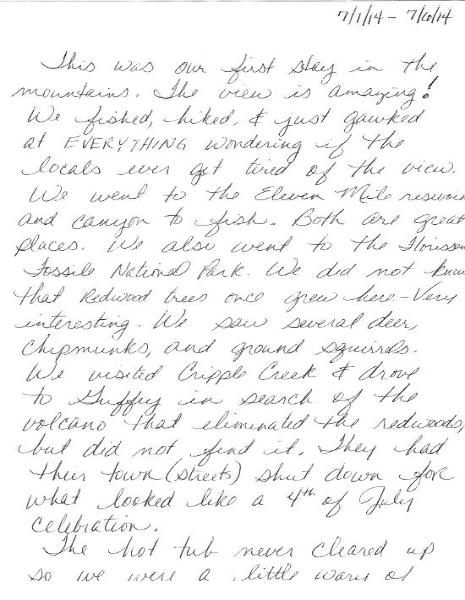 7/1/14 - 7/6/14
This was our first stay in the
mountains. The view is amazing!
We fished, hiked, & just gawked
at EVERYTHING wondering if the
locals ever get tired of the view.
We went to the Eleven Mile reservoir
and canyon to fish. Both are great
places. We also went to the Florissan
Fossile National Park. We did not know
that Redwood trees once grew here - Very
interesting. We saw several deer,
chipmunks, and ground squirrels.
We visited Cripple Creek & drove
to Guffey in search of the
volcano that eliminated the redwoods,
but did not find it. They had
their town (streets) shut down for
what looked like a 4th of July
celebration.
The hot tub never cleared up
so we were a little wary of